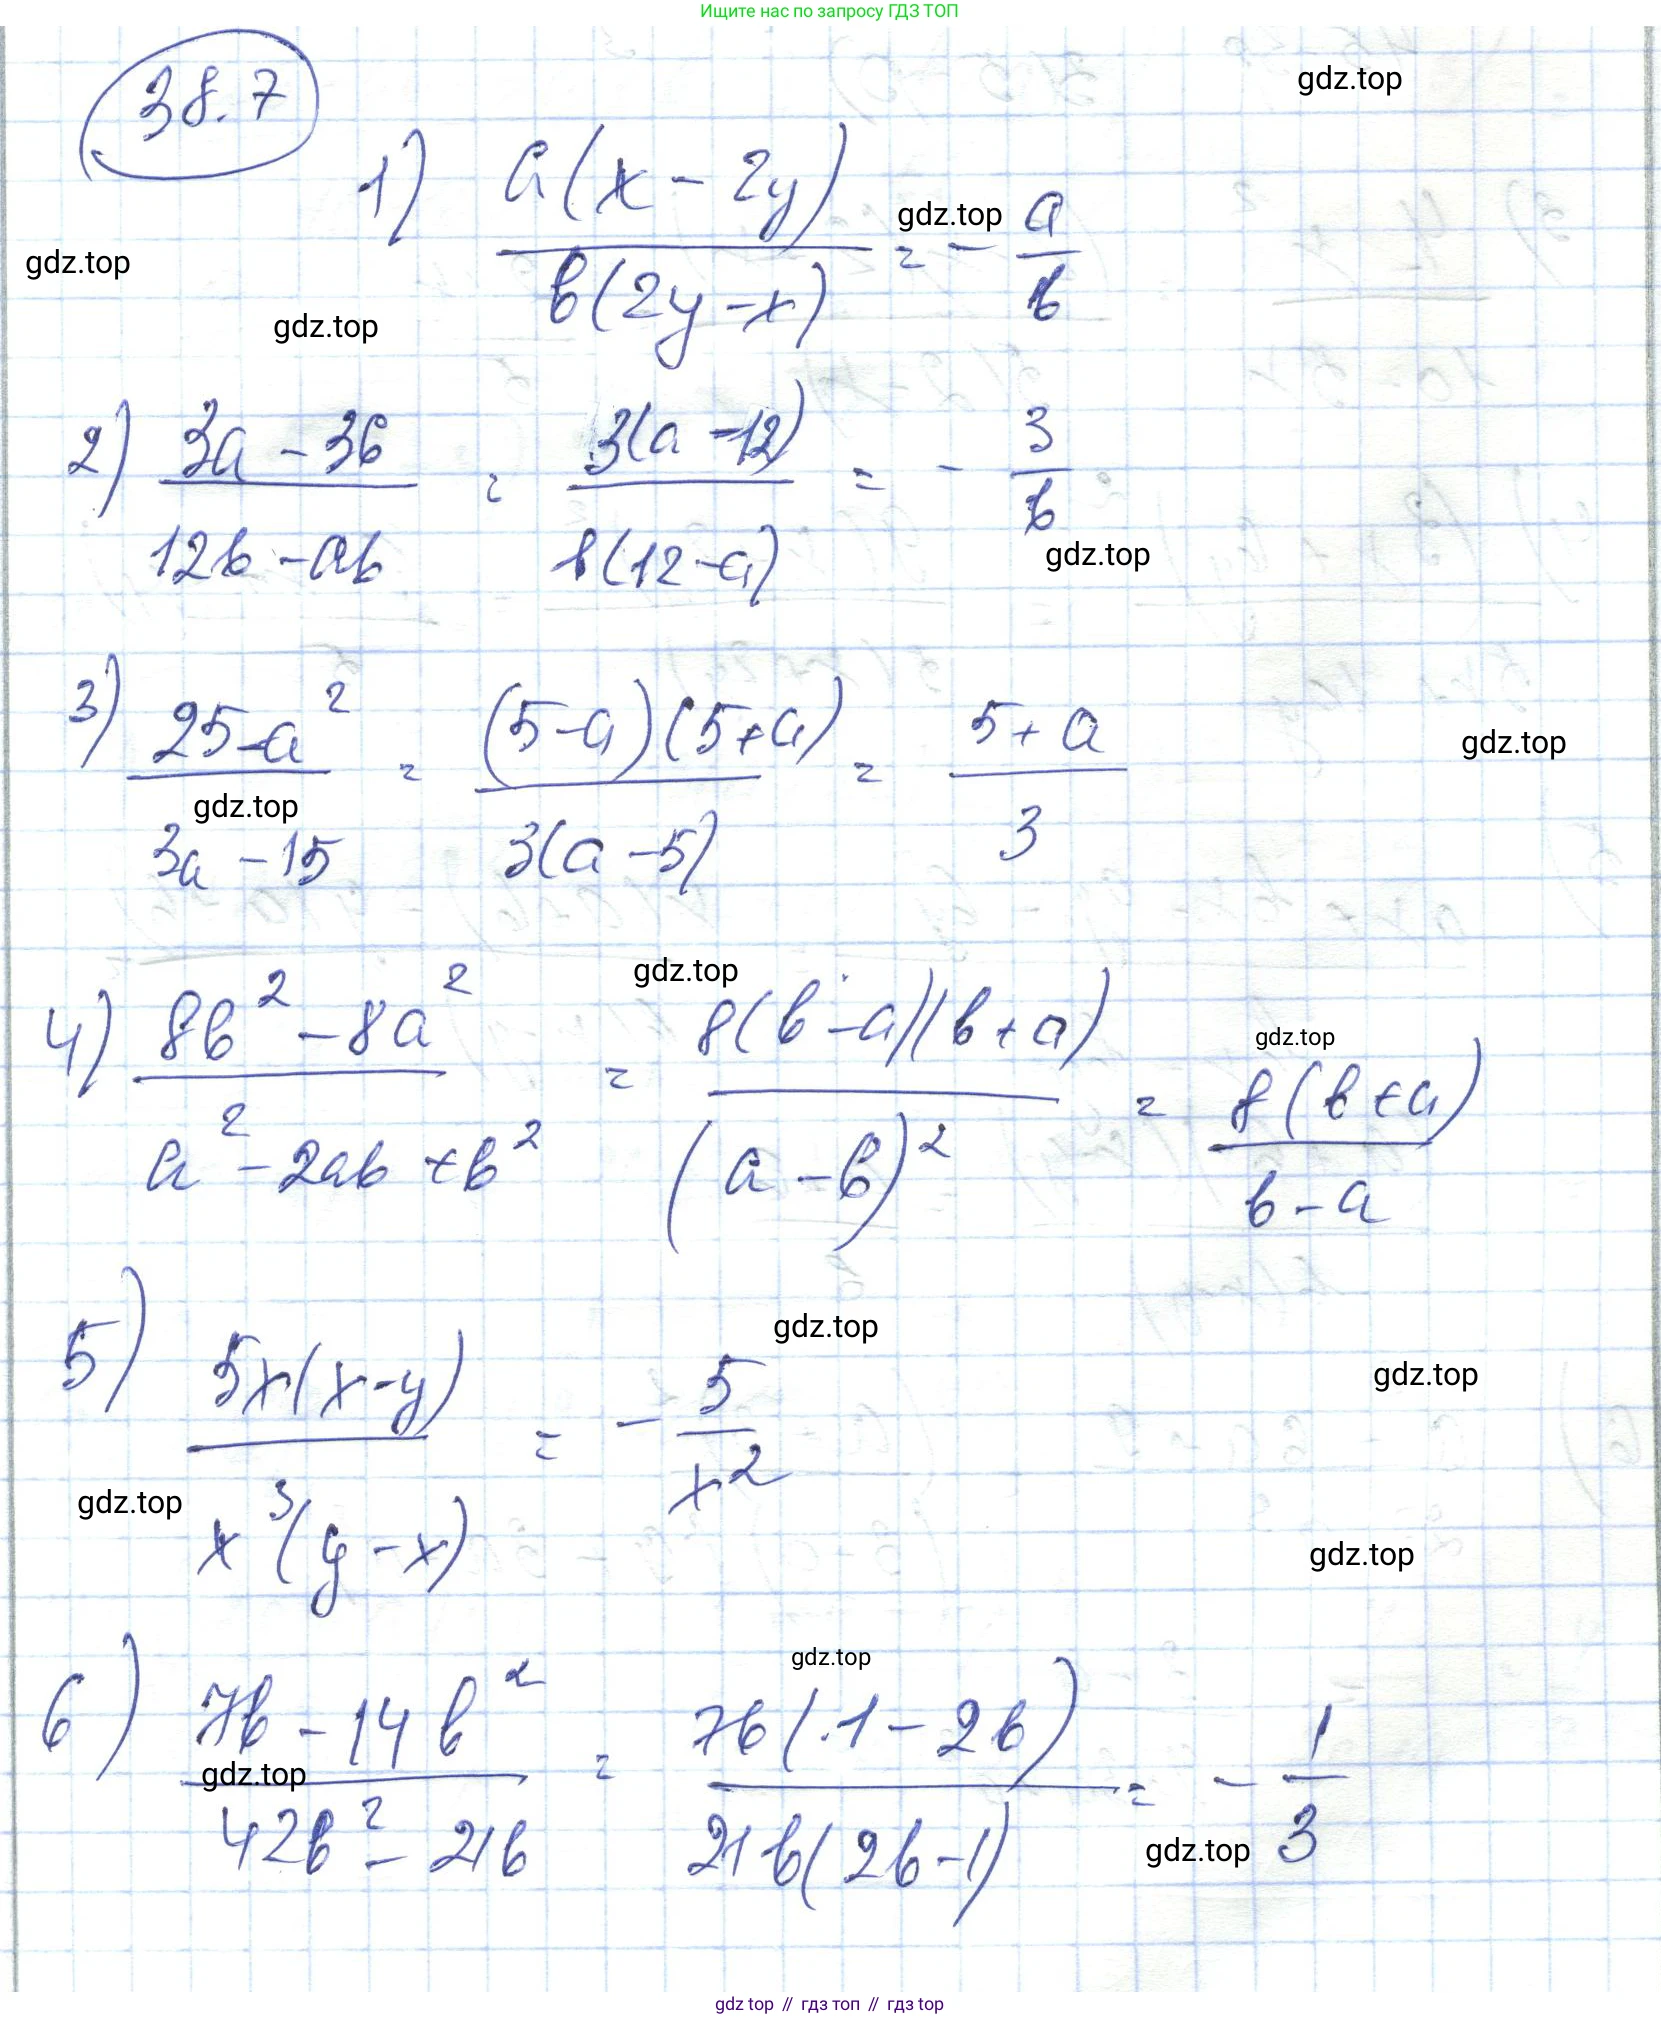 Ищите нас по запросу ГДЗ ТОП
38.7
gdz.top
1) a(x - 2y) / b(2y - x) = - a/b
gdz.top
gdz.top
gdz.top
2) 3a - 36 / 12b - ab = 3(a - 12) / b(12 - a) = - 3/b
gdz.top
3) 25 - a² / 3a - 15 = (5 - a)(5 + a) / 3(a - 5) = 5 + a / 3
gdz.top
gdz.top
gdz.top
4) 8b² - 8a² / a² - 2ab + b² = 8(b - a)(b + a) / (a - b)² = 8(b + a) / b - a
gdz.top
gdz.top
gdz.top
5) 5x(x - y) / x³(y - x) = - 5/x²
gdz.top
gdz.top
gdz.top
6) 7b - 14b² / 42b² - 21b = 7b(1 - 2b) / 21b(2b - 1) = - 1/3
gdz.top
gdz.top
gdz top // гдз топ // gdz top